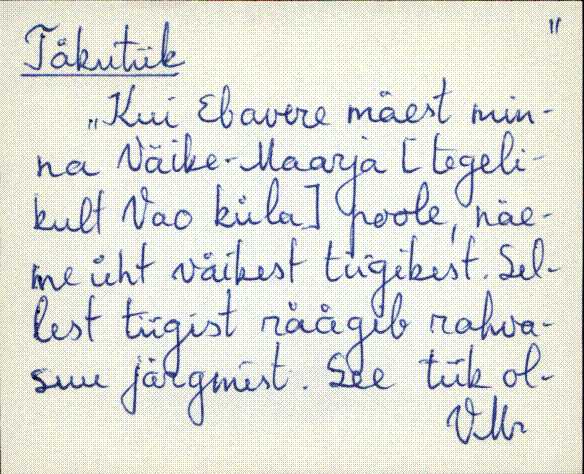 Täkutiik "
„Kui Ebavere mäest min-
na Väike-Maarja [tegeli-
kult Vao küla] poole, näe-
me üht väikest tiigikest. Sel-
lest tiigist räägib rahva-
suu järgmist. See tiik ol-
VMr